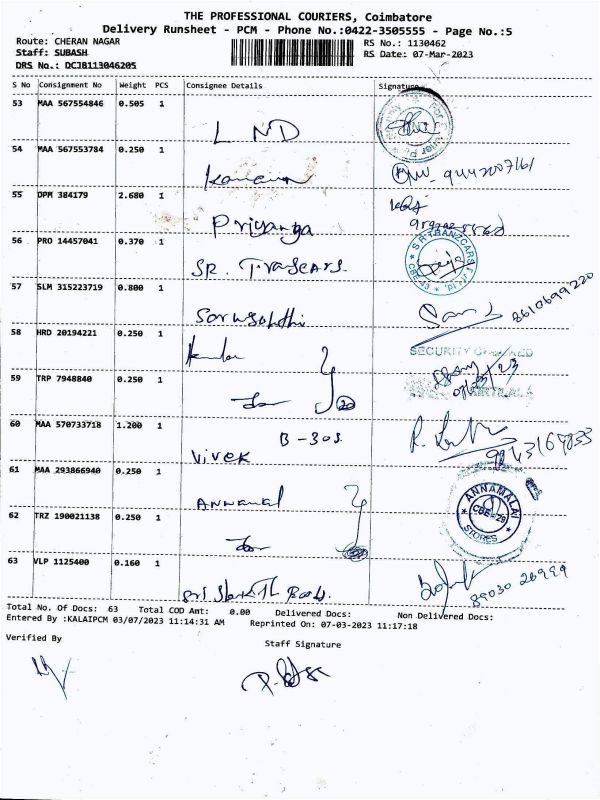 THE PROFESSIONAL COURIERS, Coimbatore
Delivery Runsheet - PCM - Phone No.:0422-3505555 - Page No.:5
Route: CHERAN NAGAR RS No.: 1130462
Staff: SUBASH RS Date: 07-Mar-2023
DRS No.: DCJB113046205
S No Consignment No Weight PCS Consignee Details Signature
53 MAA 567554846 0.505 1
L ND
54 MAA 567553784 0.250 1
9442007161
55 DPM 384179 2.680 1
Priyanga
56 PRO 14457041 0.370 1
SR. Transcars.
SR TRANZCARS
57 SLM 315223719 0.800 1
8610699220
58 HRD 20194221 0.250 1
SECURITY
59 TRP 7948840 0.250 1
20
60 MAA 570733718 1.200 1
B-303
Vivek
61 MAA 293866940 0.250 1
Annamal
ANNAMALAI
CBE-29
STORES
62 TRZ 190021138 0.250 1
63 VLP 1125400 0.160 1
89030 26999
Total No. Of Docs: 63 Total COD Amt: 0.00 Delivered Docs: Non Delivered Docs:
Entered By :KALAIPCM 03/07/2023 11:14:31 AM Reprinted On: 07-03-2023 11:17:18
Verified By Staff Signature